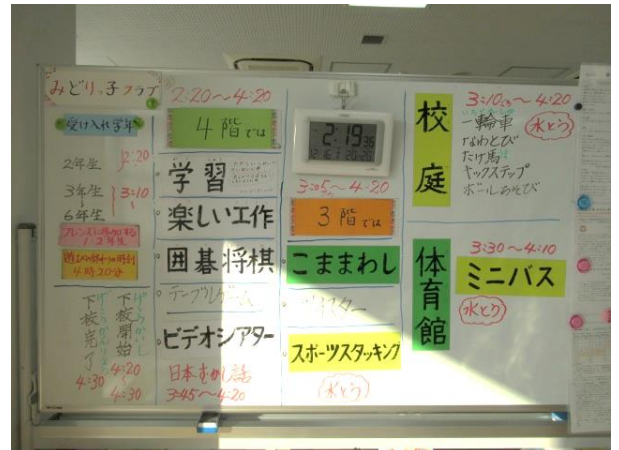 みどりっ子クラブ
受け入れ学年
2年生
2:20
3年生
6年生
3:10
4時20分
下校開始
4:20
4:30
下校完了
4:30
2:20～4:20
4階では
学習
楽しい工作
囲碁将棋
テーブルゲーム
ビデオシアター
日本むかし話
3:45～4:20
2:19
3:05～4:20
3階では
こままわし
スポーツスタッキング
(水とう)
校庭
3:10～4:20
一輪車
なわとび
たけ馬
キックステップ
ボールあそび
水とう
体育館
3:30～4:10
ミニバス
水とう